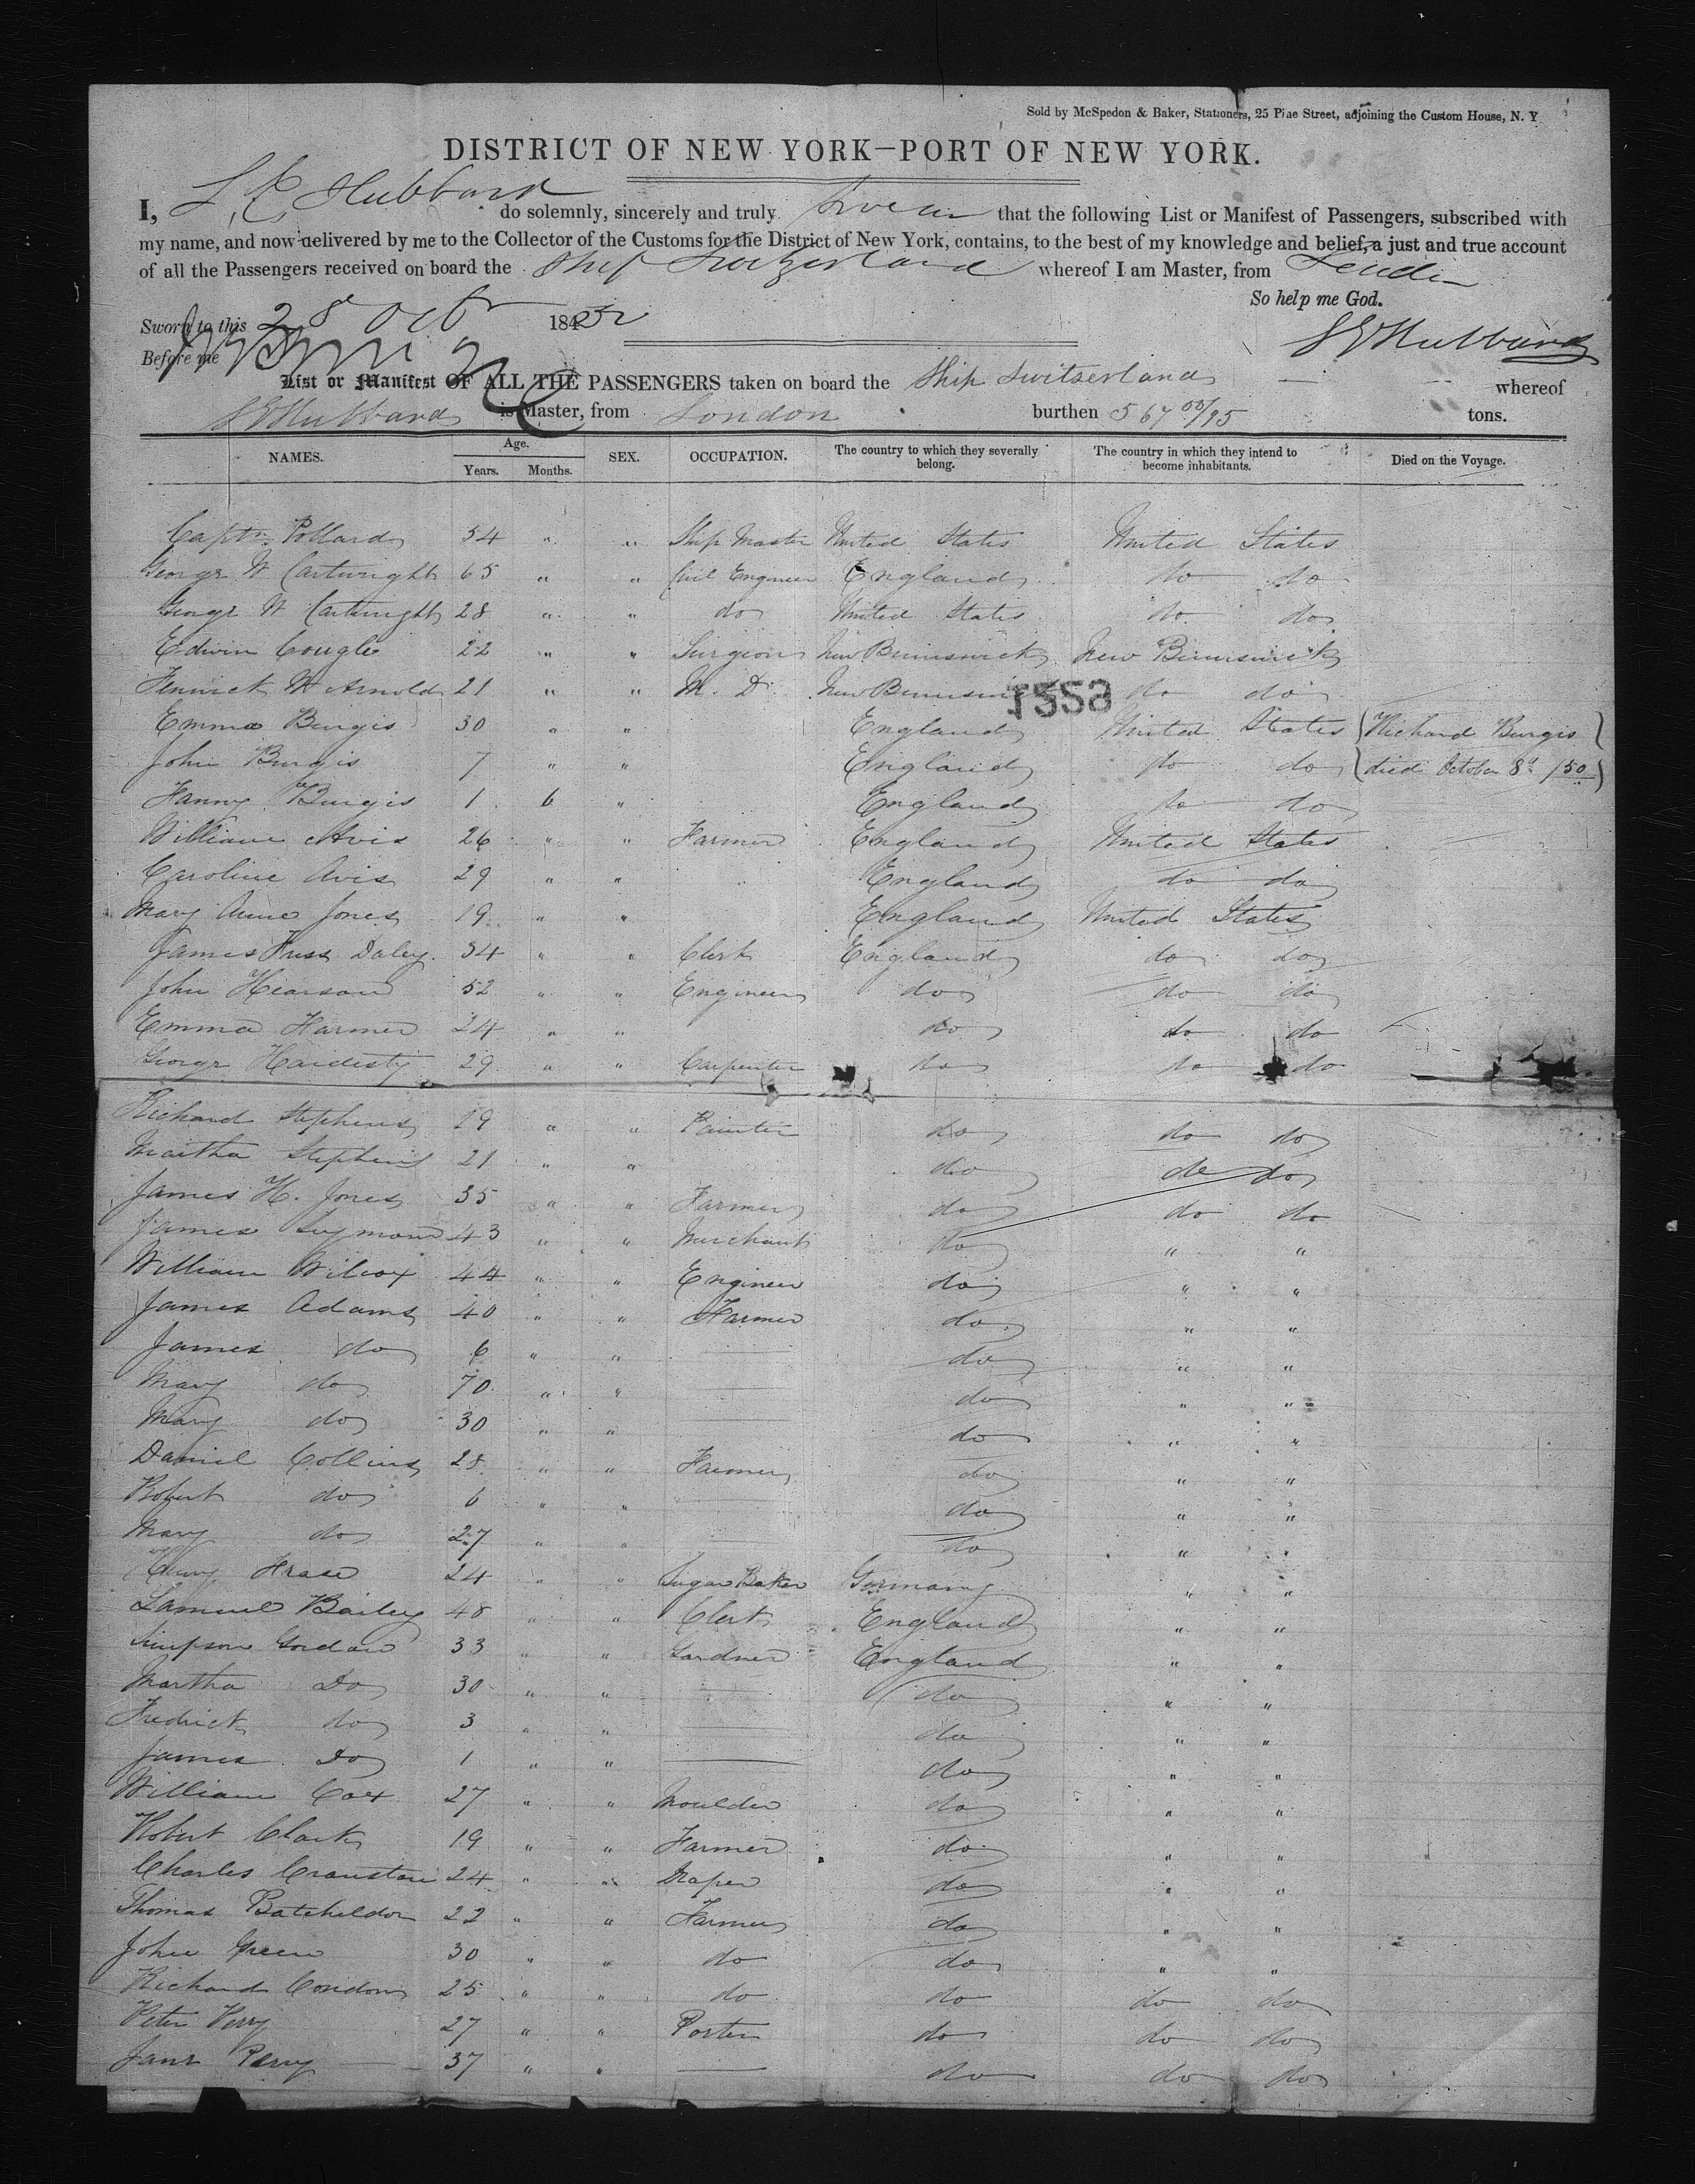 Sold by McSpedon & Baker, Stationers, 25 Pine Street, adjoining the Custom House, N. Y
DISTRICT OF NEW YORK—PORT OF NEW YORK.
I, L. E. Hubbard do solemnly, sincerely and truly swear that the following List or Manifest of Passengers, subscribed with
my name, and now delivered by me to the Collector of the Customs for the District of New York, contains, to the best of my knowledge and belief, a just and true account
of all the Passengers received on board the Ship Switzerland whereof I am Master, from London
So help me God.
Sworn to this 28 Oct 18450
Before me
Hubbard
List or Manifest OF ALL THE PASSENGERS taken on board the Ship Switzerland whereof
Hubbard is Master, from London burthen 567 00/95 tons.
NAMES. Age. Years. Months. SEX. OCCUPATION. The country to which they severally belong. The country in which they intend to become inhabitants. Died on the Voyage.
Captn. Pollard 54 " " Ship Master United States United States
George W Cartwright 65 " " Civil Engineer England do do
George W Cartwright 28 " " do United States do do
Edwin Cougle 22 " " Surgeon New Brunswick New Brunswick
Fenwick W Arnold 21 " " M. D. New Brunswick do do
1358
Emma Burgis 30 " " England United States (Richard Burgis)
John Burgis 7 " " England do do (died October 8th /50)
Fanny Burgis 1 6 " England do do
William Avis 26 " " Farmer England United States
Caroline Avis 29 " " England do do
Mary Anne Jones 19 " " England United States
James Daley 34 " " Clerk England do do
John Hearson 52 " " Engineer do do do
Emma Harmer 24 " " do do do
George Hardesty 29 " " Carpenter do do do
Richard Stephens 29 " " Painter do do do
Martha Stephens 21 " " do do do
James H. Jones 35 " " Farmer do do do
James Symons 43 " " Merchant do " "
William Wilcox 44 " " Engineer do " "
James Adams 40 " " Farmer do " "
James do 6 " " do " "
Mary do 70 " " do " "
Mary do 30 " " do " "
Daniel Collins 28 " " Farmer do " "
Robert do 6 " " do " "
Mary do 27 " " do " "
Henry 24 " " Sugar Baker Germany " "
Samuel Bailey 48 " " Clerk England " "
Simpson Gordon 33 " " Gardner England " "
Martha Do 30 " " do " "
Fredrick do 3 " " do " "
James Do 1 " " do " "
William Cox 27 " " Moulder do " "
Robert Clark 19 " " Farmer do " "
Charles Cranston 24 " " Draper do " "
Thomas Batcheldor 22 " " Farmer do " "
John Green 30 " " do do " "
Richard Condon 25 " " do do do do
Peter Perry 27 " " Porter do do do
Jane Perry 37 " " do do do